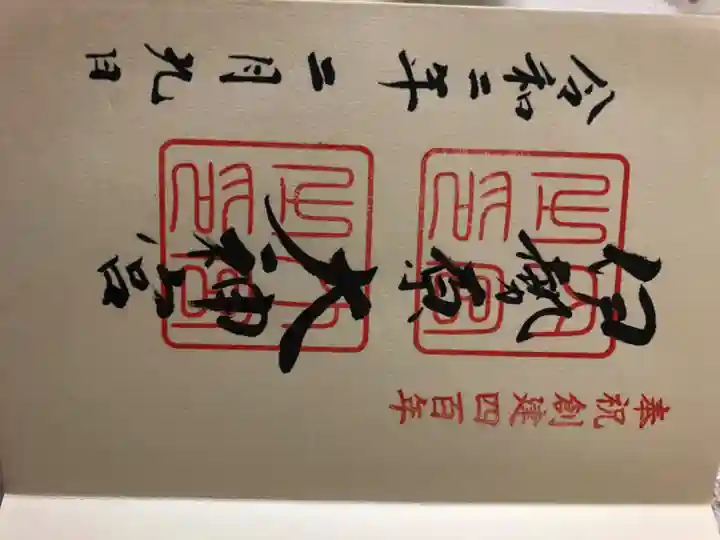 奉祝創建四百年
伊勢原大神宮
令和二年二月九日